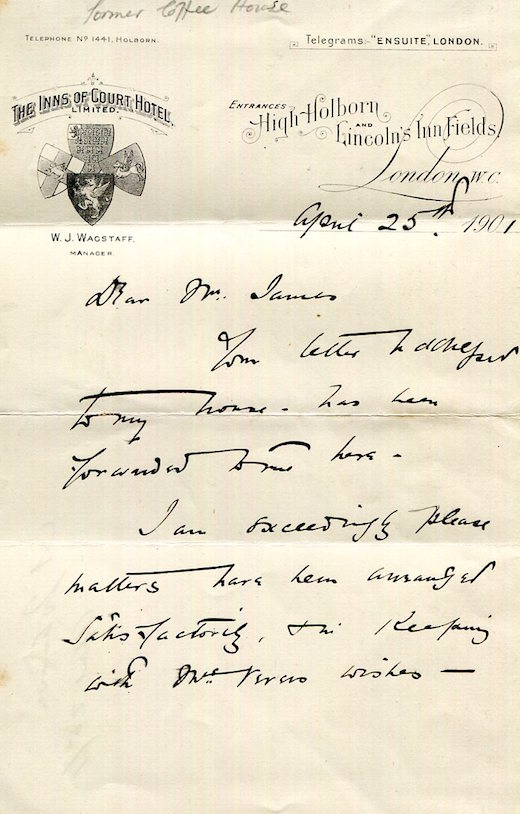 former Coffee House
TELEPHONE Nº 1441, HOLBORN.
Telegrams:-"ENSUITE", LONDON.
THE INNS OF COURT HOTEL
LIMITED.
W. J. WAGSTAFF,
MANAGER
ENTRANCES
High Holborn
AND
Lincoln's Inn Fields,
London, W.C.
April 25th 1901
Dear Mr. James
Your letter addressed
to my house - has been
forwarded to me here -
I am exceedingly please
matters have been arranged
Satisfactorily, & in Keeping
with Mrs wishes —